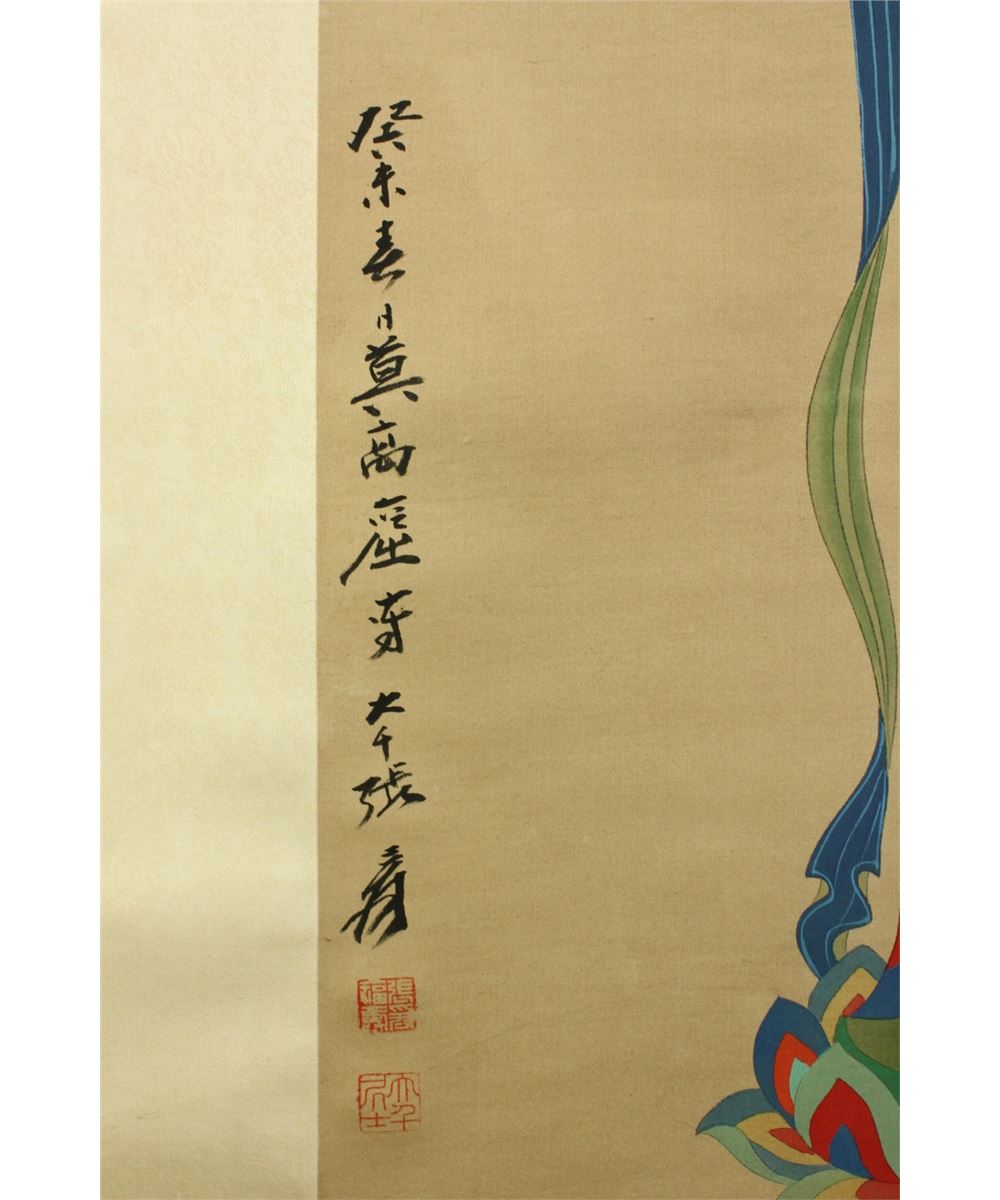 癸未春日莫高窟 大千張爰
張爰福壽
大千居士